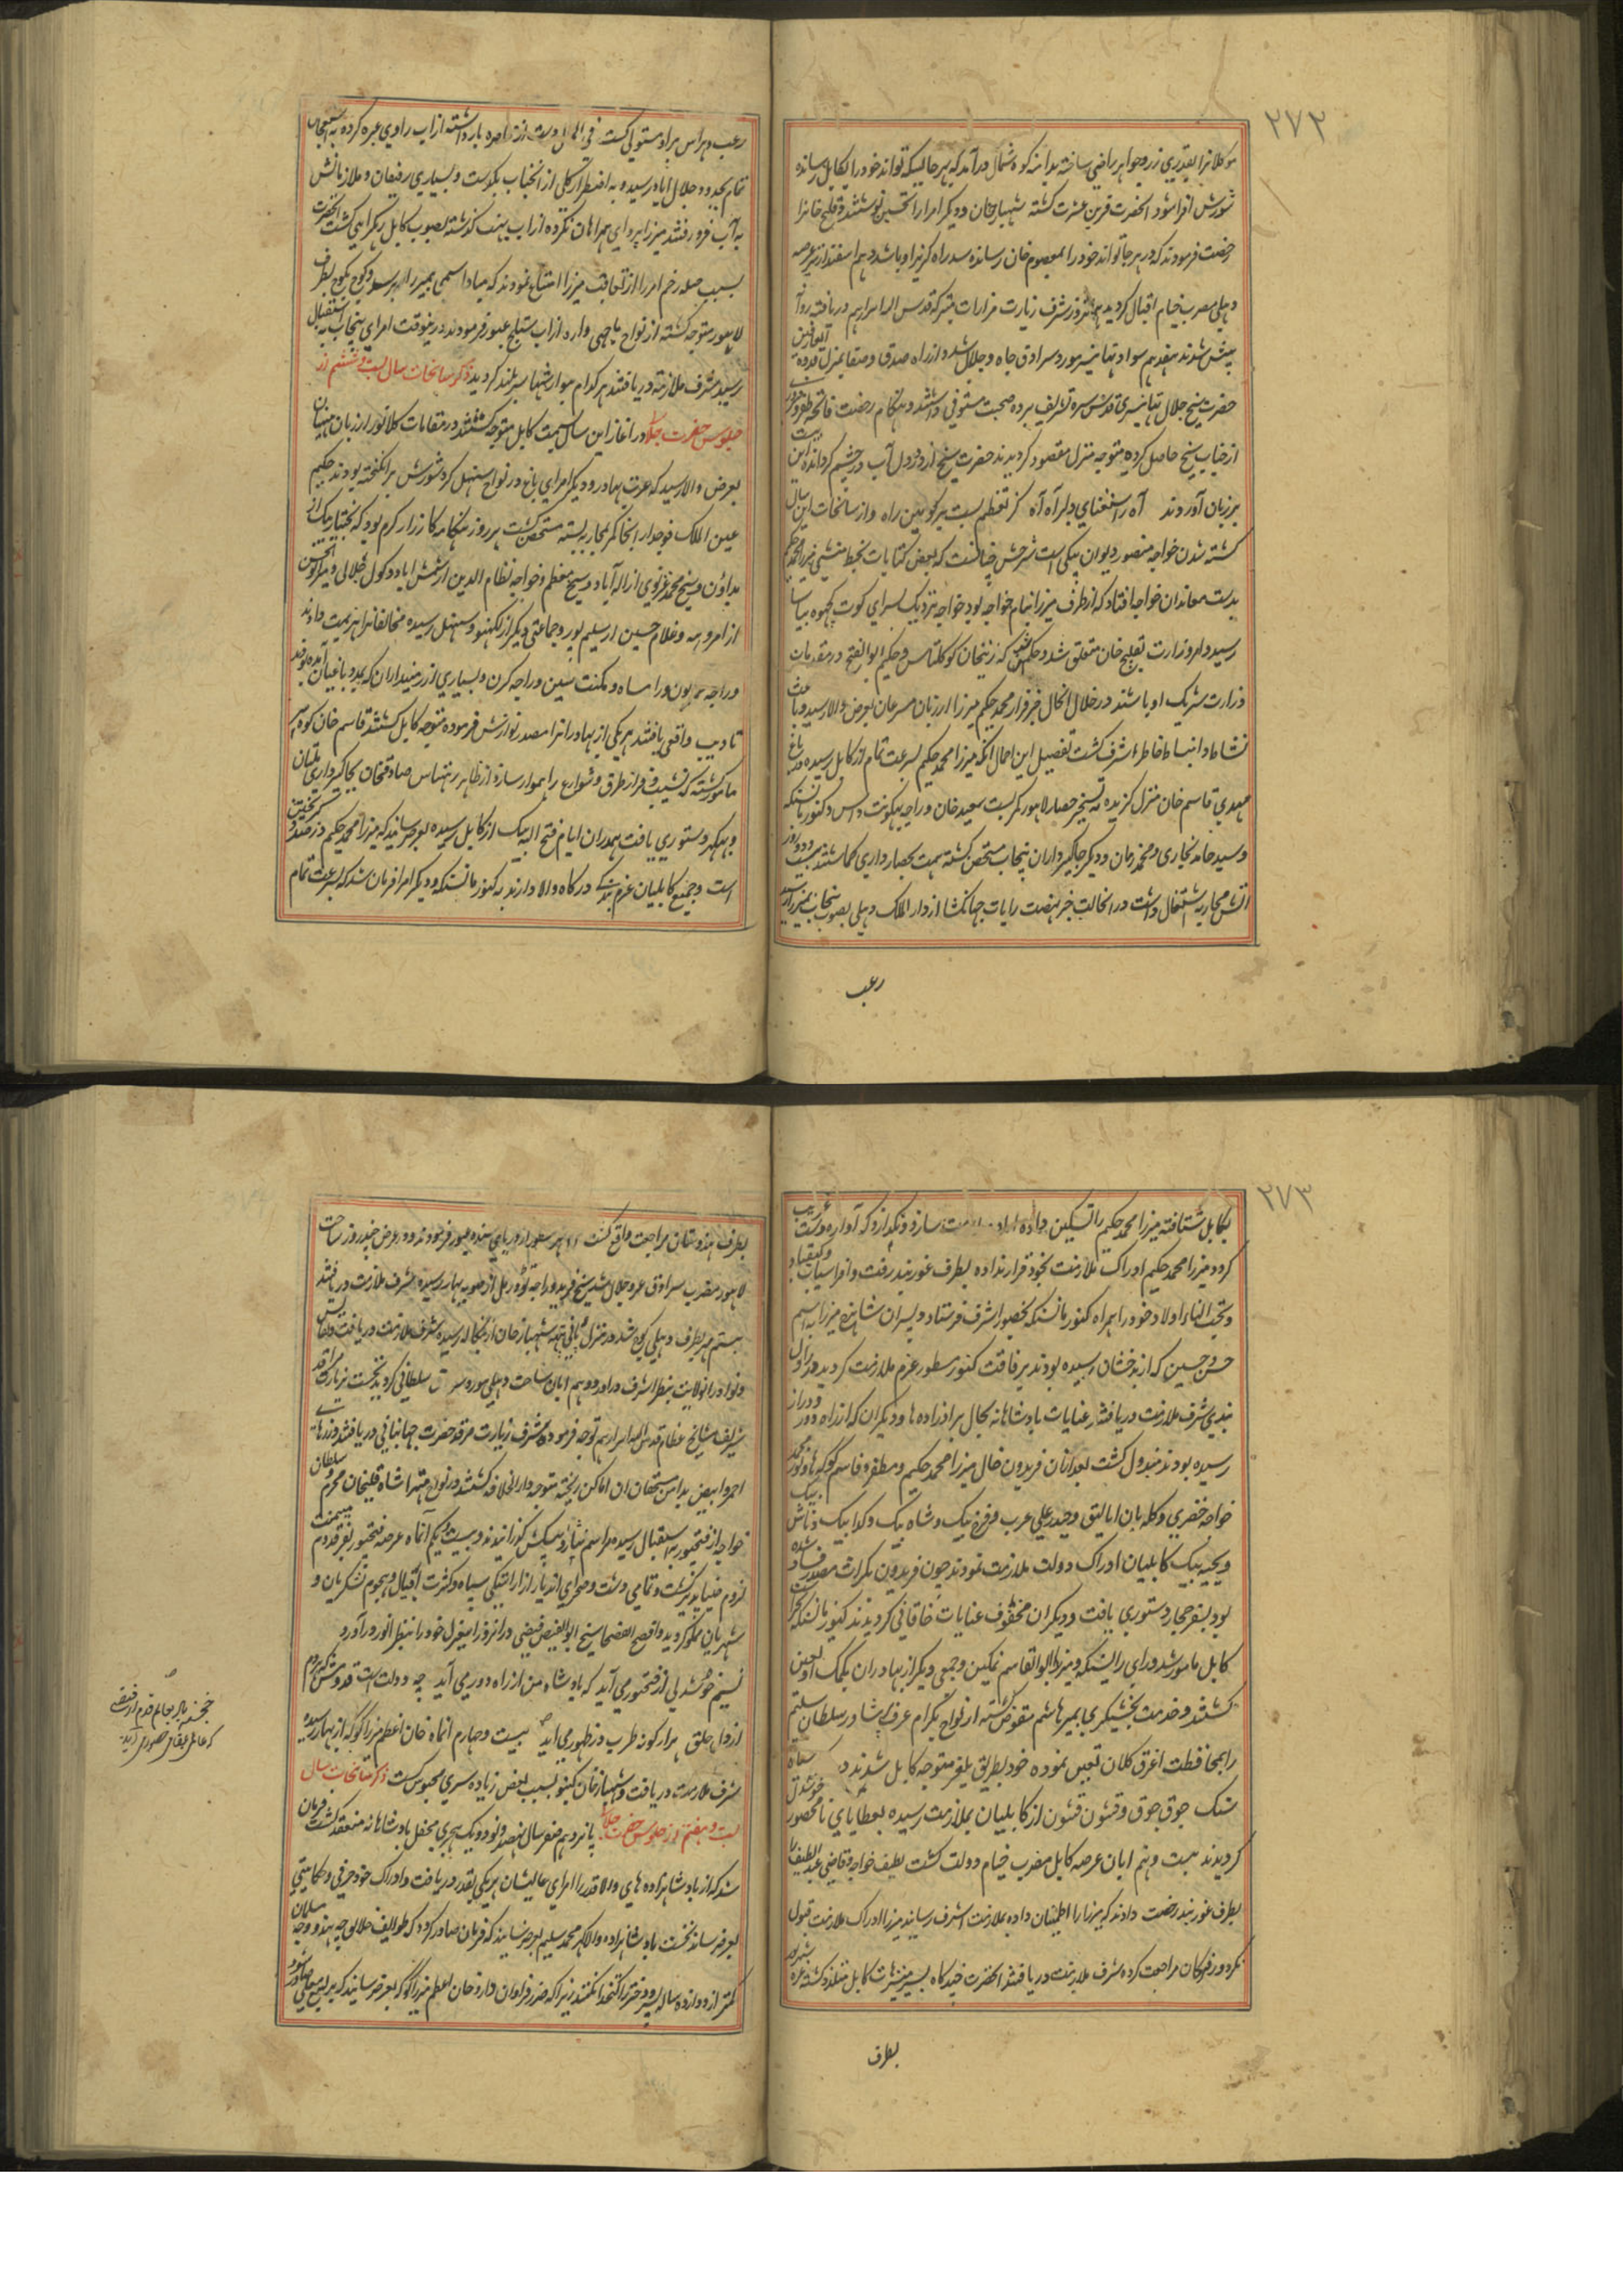 ۲۷۲
موکلانرا بقدری زر و جواهر راضی ساخته بدامنه کوه شمال درآمد که بهر حالیکه تواند خود را بکابل رسانده
شورش افزا شود انحضرت قرین عشرت کشته شهباز خان و دیگر امرا را تحسین نوشتند و قلیج خانرا
رخصت فرمودند که در هر جا تواند خود را بمعصوم خان رسانده سد راه کریز او باشد دهم اسفندارمز عرصه
دهلی مضرب خیام اقبال کردید هژده روز شرف زیارت مزارات متبرکه قدس الله اسرارهم دریافته روانه
پیش شدند هفدهم سواد تهانیسر مورد سرادق جاه و جلال شد و از راه صدق و صفا بمنزل قدوة العارفین
حضرت شیخ جلال تهانیسری قدس سره تشریف برده صحبت مستوفی داشتند و هنکام رخصت فاتحه ظفر و نصرت
از جناب شیخ حاصل کرده متوجه منزل مقصود کردیدند حضرت شیخ از درد دل آب در چشم کردانده این بیت
بر زبان آوردند آه ز استغنای دلبر آه آه کز تعظم بست بر کونین راه و از سانحات این سال
کشته شدن خواجه منصور دیوان بیکی است شرحش چنانست که بعض کتابات بخط منشی میرزا محمد حکیم
بدست معاندان خواجه افتاد که از طرف میرزا بنام خواجه بود خواجه نزدیک بسرای کوت کچهوه بیاسا
رسید و امر وزارت بقلیج خان متعلق شد و حکم شد که زینخان کوکلتاش و حکیم ابوالفتح در مقدمات
وزارت شریک او باشند در خلال انحال خبر فرار محمد حکیم میرزا از زبان مسرعان بعرض والا رسید و باعث
نشاط و انبساط خاطر اشرف کشت تفصیل این اجمال انکه میرزا محمد حکیم بسرعت تمام از کابل رسیده در باغ
مهدی قاسم خان منزل کزیده به تسخیر حصار لاهور کمر بست سعید خان و راجه بهکونت داس و کنور مانسنکه
و سید حامد بخاری و محمد زمان و دیکر جاکیرداران پنجاب متحصن کشته همت بحصارداری کماشتند بیست و دو روز
اتش محاربه اشتعال داشت در انحالت خبر نهضت رایات جهانکشا از دار الملک دهلی بصوب پنجاب بمیرزا رسید
رعب
رعب و هراس بر او مستولی کشت فی الحال دست از محاصره بازداشته از آب راوی عبره کرده به استعجال
تمام بحدود جلال اباد رسید و به اضطرار کلی از انجناب بکذشت و بسیاری رفیقان و ملازمانش
به آب فرو رفتند میرزا پروای همراهان نکرده از اب بهت کذشته بصوب کابل رهکرای کشت انحضرت
بسبب صله رحم امرا را از تعاقب میرزا امتناع نمودند که مبادا اسیبی بمیرزا برسد و کوچ بکوچ بطرف
لاهور متوجه کشته از نواح ماچهی واره از اب ستلج عبور فرمودند درینوقت امرای پنجاب به استقبال
رسیده شرف ملازمت دریافتند هر کدام بنوازشها سربلند کردید ذکر سانحات سال بیست و ششم از
جلوس حضرت جلال در اغاز این سال بسمت کابل متوجه کشتند در مقامات کلانور از زبان منهیان
بعرض والا رسید که عرب بهادر و دیکر امرای باغی در نواح سنهل کرد شورش برانکیخته بودند حکیم
عین الملک فوجدار انجا کمر بمحاربه بسته متحصن کشت هر روز هنکامه کارزار کرم بود که بختیار بیک از
بداون و شیخ محمد غزنوی از اله آباد و شیخ معظم و خواجه نظام الدین از شمش اباد و کول جلالی و میر ابوالحسن
از امروهه و غلام حسین از سلیم پور و جماعتی دیکر از لکهنو و سنهل رسیده مخالفانرا هزیمت دادند
و راجه همابون و رامساه و مکنت سین و راجه کرن و بسیاری از زمینداران که بمدد باغیان آمده بودند
تادیب واقعی یافتند هر یکی از بهادرانرا مصدر نوازش فرموده متوجه کابل کشتند قاسم خان کوه
مامور کشته که نشیب و فراز طرق و شوارع را هموار سازد از ظاهر رهتاس صادقخان بجاکیرداری ملتان
و بهکهر دستوری یافت همدران ایام فتح الله بیک از کابل رسیده بعرض رسانید که میرزا محمد حکیم در صدد کریختن
است و جمیع کابلیان عزم بندکی درکاه والا دارند به کنور مانسنکه و دیکر امرا فرمان شد که بسرعت تمام
۲۷۳
بکابل شتافته میرزا محمد حکیم را تسکین داده اراده ملازمت سازد و نکذارد که آواره دشت غربت
کردد میرزا محمد حکیم ادراک ملازمت بخود قرار نداده بطرف غوربند رفت و افراسیاب و کیقباد
و تحت النساء اولاد خود را همراه کنور مانسنکه بحضور اشرف فرستاد و پسران شاهرخ میرزا به اسم
حسن و حسین که از بدخشان رسیده بودند برفاقت کنور مسطور عزم ملازمت کردید در اول
بندی شرف ملازمت دریافتند عنایات بادشاهانه بحال برادرزاده ها و دیکران که از راه دور و دراز
رسیده بودند مبذول کشت بعد ازان فریدون خال میرزا محمد حکیم و مظفر و قاسم کوکه و نور محمد
خواجه خضری و کله بان اتالیق و حیدر علی عرب و فرخ بیک و شاه بیک و کدا بیک و تاش بیک
و یحیی بیک کابلیان ادراک دولت ملازمت نمودند چون فریدون بکرات مصدر فساد شده
بود بسفر حجاز دستوری یافت و دیکران محفوف عنایات خاقانی کردیدند کنور مانسنکه بحراست
کابل مامور شد و رای رایسنکه و میرزا ابوالقاسم نمکین و جمعی دیکر از بهادران بکمک او تعین
کشتند و خدمت بخشیکری بمیر هاشم مفوض کشته از نواح بکرام عرف پشاور سلطان سلیم
را بمحافظت اغرق کلان تعین نموده خود بطریق یلغر متوجه کابل شدند و سعادت
سنک جوق جوق و قشون قشون از کابلیان بملازمت رسیده بعطایای نامحصور خوشدل
کردیدند بیست و نهم ابان عرصه کابل مضرب خیام دولت کشت لطیف خواجه و قاضی عبد اللطیف
بطرف غوربند رخصت دادند که میرزا را اطمینان داده بملازمت اشرف رسانند میرزا ادراک ملازمت قبول
نکرد و فرستادکان مراجعت کرده شرف ملازمت دریافتند انحضرت چند کاه بسیر متنزهات کابل متلذذ کشته غره شهریور
بطرف
بطرف هندوستان مراجعت واقع کشت از دریای سند عبور فرمودند و در عرض چند روز ساحت
لاهور مضرب سرادق عز و جلال شد شیخ فرید و راجه تودرمل از صوبه بهار رسیده شرف ملازمت دریافتند
بیستم مهر بطرف دهلی کوچ شد در منزل پانی پته شهباز خان از بنکاله رسیده شرف ملازمت دریافت و نفایس
و نوادر انولایت بنظر اشرف دراورد دهم ابان ساحت دهلی مورد سرادق سلطانی کردید نخست بزیارت مراقد
شریف مشایخ عظام قدس الله اسرارهم توجه فرموده شرف زیارت مرقد حضرت جهانبانی دریافتند و زرهای
احمر و ابیض بدامن مستحقان ان اماکن ریخته متوجه دار الخلافه کشتند در نواح متهرا شاه قلیخان محرم و سلطان
خواجه از فتحپور به استقبال رسیده مراسم نثار و پیشکش کذرانیدند و بیست و یکم آنماه عرصه فتحپور بفر قدوم میمنت
لزوم ضیاپذیر کشت و تمامی دشت و صحرای اندیار از اراستکی سپاه و کثرت اقبال و هجوم لشکریان و
شهریان مملو کردید و افصح الفصحا شیخ ابوالفیض فیضی درانروز این غزل خود را بنظر انور درآورد
نسیم خوشدلی از فتحپور می آید که بادشاه من از راه دور می آید چه دولت است قدومش که هر دم
از دل خلق هزار کونه طرب در ظهور می آید بیست و چهارم آنماه خان اعظم میرزا کوکه از بهار رسیده
شرف ملازمت دریافت و شهباز خان کنبو بسبب بعض زیاده سری محبوس کشت ذکر سانحات سال
بیست و هفتم از جلوس حضرت جلال پانزدهم صفر سال نهصد و نود و یک هجری محفل بادشاهانه منعقد کشت فرمان
شد که از بادشاهزاده های والاقدر تا امرای عالیشان هر یکی بقدر دریافت و ادراک خود حرفی و حکایتی
بعرض رساند نخست بادشاهزاده والاکهر محمد سلیم بعرض رسانید که فرمان صادر کردد که طوایف خلایق چه هندو و چه مسلمان
کمتر از دوازده ساله پسر و دختر را کتخدا نکنند زیرا که ضرر فراوان دارد خان اعظم میرزا کوکه بعرض رسانید که
خجسته باد بعالم قدوم او فیضی
که عالمی بمقام حضور می آید